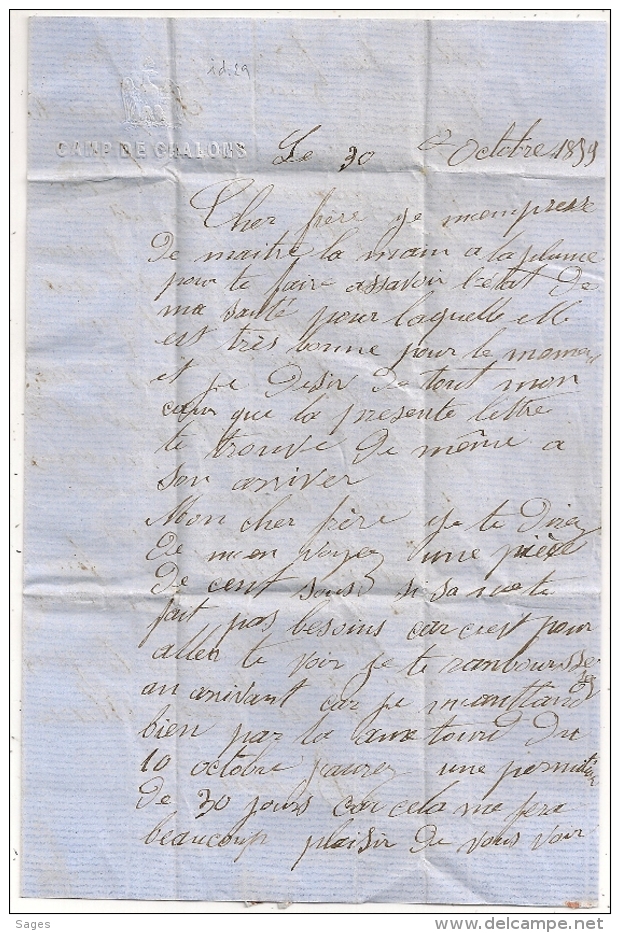 id. 29
CAMP DE CHALONS
Le 30 Octobre 1859
Cher frère je mempresse
De maitre la main a la plume
pour te faire assavoir l'état De
ma santé pour laquelle elle
est très bonne pour le momen
et je Desir De tout mon
cœur que la presente lettre
te trouve De même a
son arriver
Mon cher frère je te Direz
De men voyez une pièce
De cent sous si sa ne te
fait pas besoins car c'est pour
aller te voir je te rembourserez
an arrivant car je manttand
bien par la aux tours Du
10 octobre jaurez une permition
De 30 jours car cela me fera
beaucoup plaisir De vous voir
Sages
www.delcampe.net